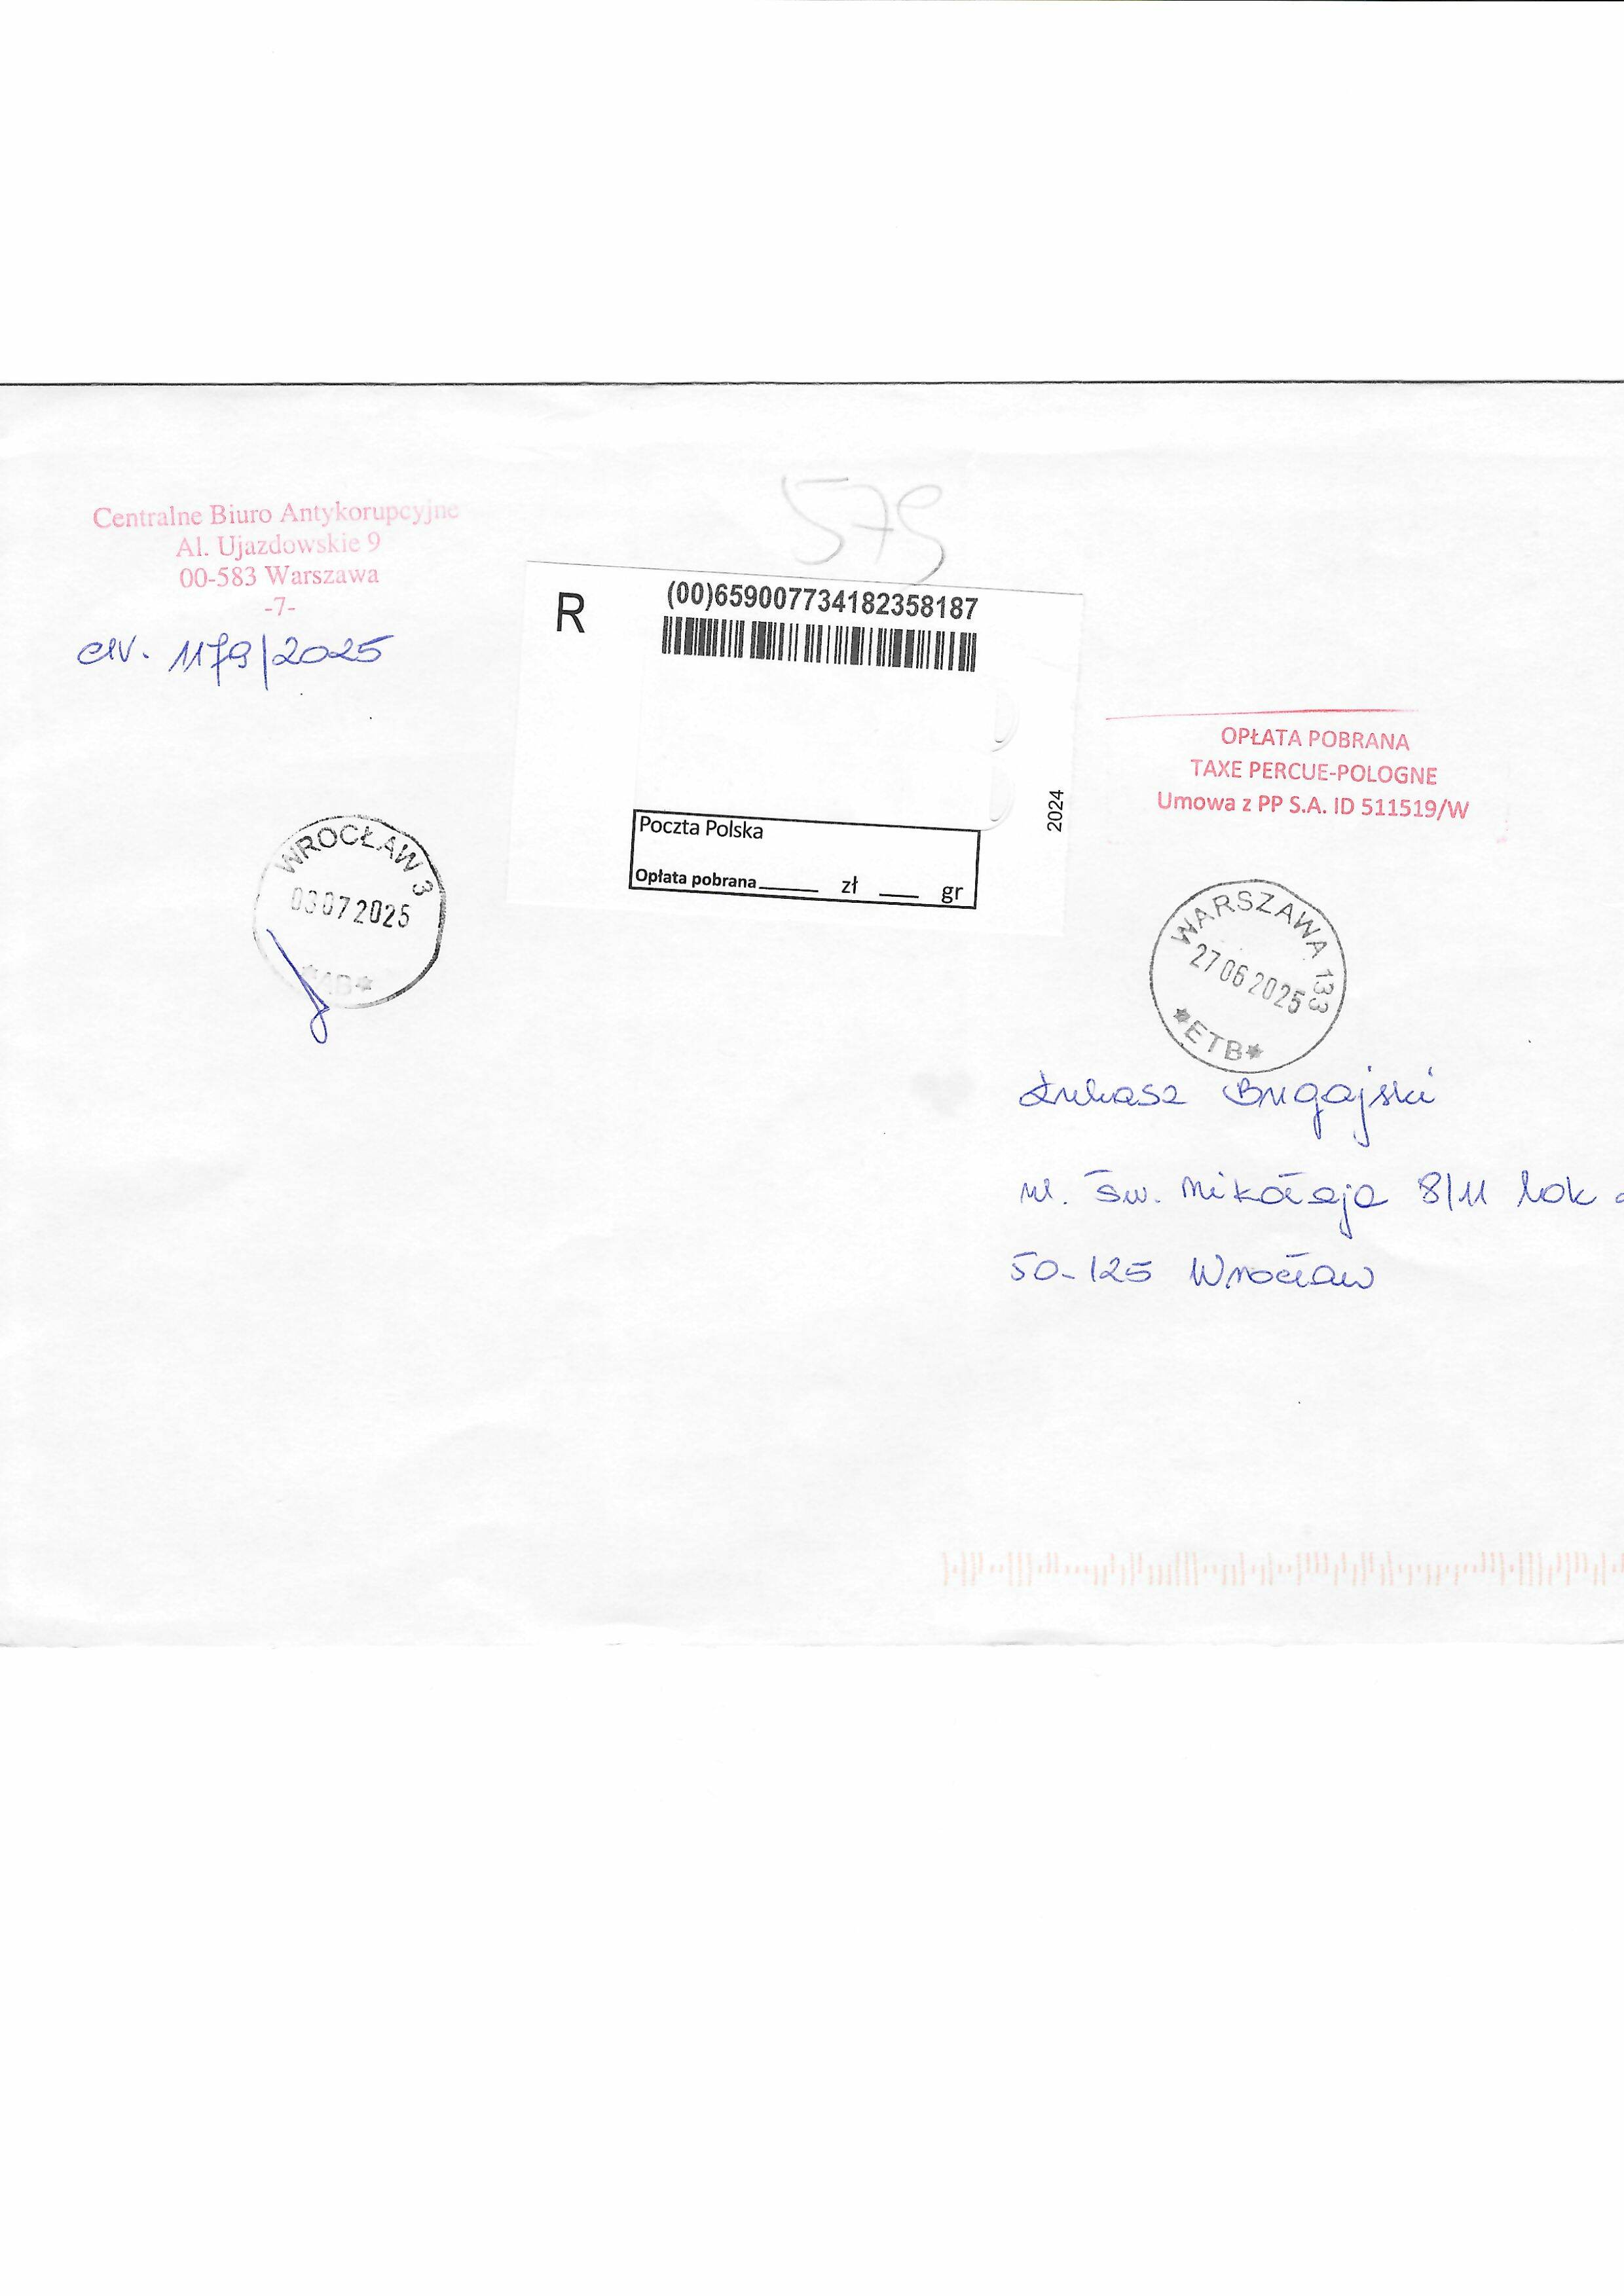 Centralne Biuro Antykorupcyjne
Al. Ujazdowskie 9
00-583 Warszawa
-7-
1179/2025
579
R
(00)659007734182358187
2024
Poczta Polska
Opłata pobrana______ zł ____ gr
OPŁATA POBRANA
TAXE PERCUE-POLOGNE
Umowa z PP S.A. ID 511519/W
WROCŁAW 3
03072025
WARSZAWA 133
27062025
*ETB*
Łukasz Bugajski
ul. św. Mikołaja 8/11 lok
50-125 Wrocław